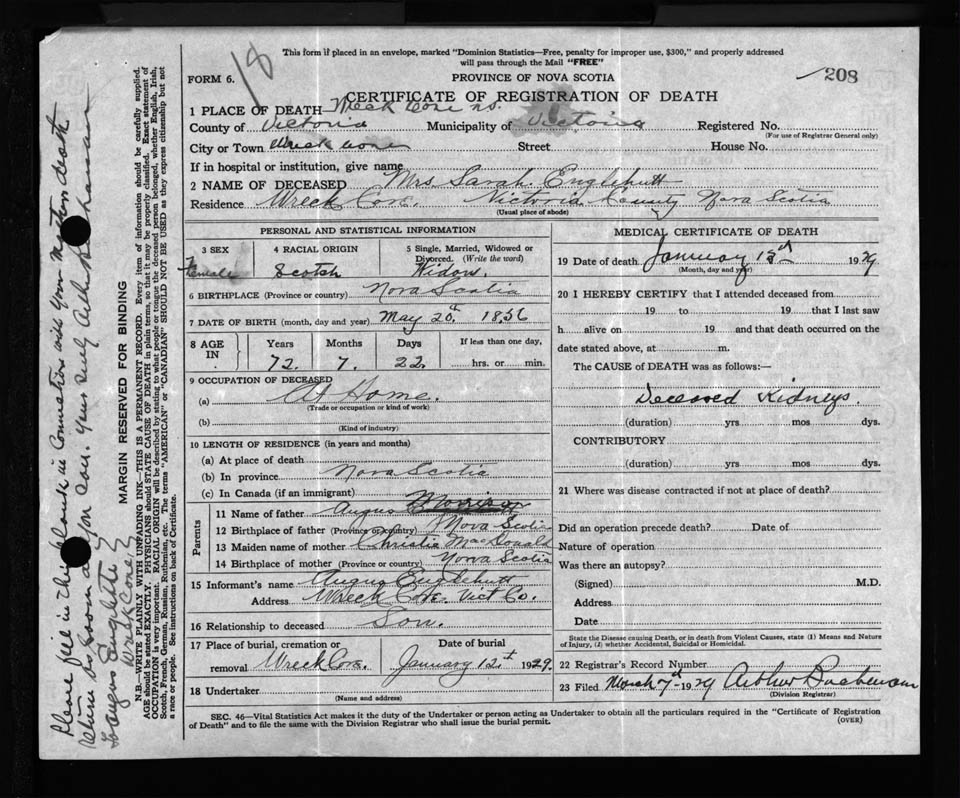 18
This form if placed in an envelope, marked "Dominion Statistics—Free, penalty for improper use, $300," and properly addressed
will pass through the Mail "FREE"
FORM 6.
PROVINCE OF NOVA SCOTIA
208
CERTIFICATE OF REGISTRATION OF DEATH
1 PLACE OF DEATH Wreck Cove N.S.
County of Victoria Municipality of Victoria Registered No.
(For use of Registrar General only)
City or Town Wreck Cove Street House No.
If in hospital or institution, give name
2 NAME OF DECEASED Mrs Sarah Englehutt
Residence Wreck Cove. Victoria County Nova Scotia
(Usual place of abode)
PERSONAL AND STATISTICAL INFORMATION
3 SEX 4 RACIAL ORIGIN 5 Single, Married, Widowed or
Divorced. (Write the word)
Female Scotch Widow.
6 BIRTHPLACE (Province or country) Nova Scotia
7 DATE OF BIRTH (month, day and year) May 20th. 1856
8 AGE IN Years Months Days If less than one day,
72. 7. 22. hrs. or min.
9 OCCUPATION OF DECEASED
(a) At Home.
(Trade or occupation or kind of work)
(b)
(Kind of industry)
10 LENGTH OF RESIDENCE (in years and months)
(a) At place of death
(b) In province Nova Scotia
(c) In Canada (if an immigrant)
Parents
11 Name of father Angus
12 Birthplace of father (Province or country) Nova Scotia
13 Maiden name of mother Christie MacDonald
14 Birthplace of mother (Province or country) Nova Scotia
15 Informant's name Angus Englehutt
Address Wreck Cove. Vict Co.
16 Relationship to deceased Son.
17 Place of burial, cremation or Date of burial
removal Wreck Cove. January 12th 1929.
18 Undertaker
(Name and address)
MEDICAL CERTIFICATE OF DEATH
19 Date of death January 13th 1929
(Month, day and year)
20 I HEREBY CERTIFY that I attended deceased from
19 to 19 that I last saw
h alive on 19 and that death occurred on the
date stated above, at m.
The CAUSE of DEATH was as follows:—
Deceased Kidneys.
(duration) yrs mos dys.
CONTRIBUTORY
(duration) yrs mos dys.
21 Where was disease contracted if not at place of death?
Did an operation precede death? Date of
Nature of operation
Was there an autopsy?
(Signed) M.D.
Address
Date
State the Disease causing Death, or in death from Violent Causes, state (1) Means and Nature
of Injury, (2) whether Accidental, Suicidal or Homicidal.
22 Registrar's Record Number
23 Filed March 7th 1929 Arthur Buchanan
(Division Registrar)
SEC. 46—Vital Statistics Act makes it the duty of the Undertaker or person acting as Undertaker to obtain all the particulars required in the "Certificate of Registration
of Death" and to file the same with the Division Registrar who shall issue the burial permit.
(OVER)
MARGIN RESERVED FOR BINDING
N.B.—WRITE PLAINLY WITH UNFADING INK—THIS IS A PERMANENT RECORD. Every item of information should be carefully supplied.
AGE should be stated EXACTLY. PHYSICIANS should STATE CAUSE OF DEATH in plain terms, so that it may be properly classified. Exact statement of
OCCUPATION is very important. RACIAL ORIGIN will be described by stating to what people or tongue the deceased person belonged, whether English, Irish,
Scotch, French, German, Russian, Ruthenian, etc. The terms "AMERICAN" or "CANADIAN" SHOULD NOT BE USED as they express citizenship but not
a race or people. See instructions on back of Certificate.
Please fill in this blank in Connection with your Mothers death
return as soon as you can. yours truly Arthur Buchanan
To angus Englehutt
Wreck Cove